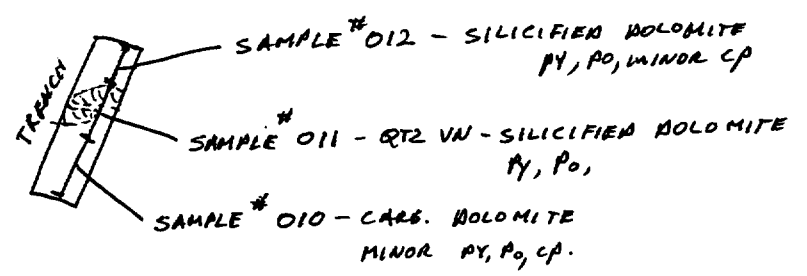 TRENCH
SAMPLE # 012 - SILICIFIED DOLOMITE
PY, PO, MINOR CP
SAMPLE # 011 - QTZ VN - SILICIFIED DOLOMITE
PY, PO,
SAMPLE # 010 - CARB. DOLOMITE
MINOR PY, PO, CP.